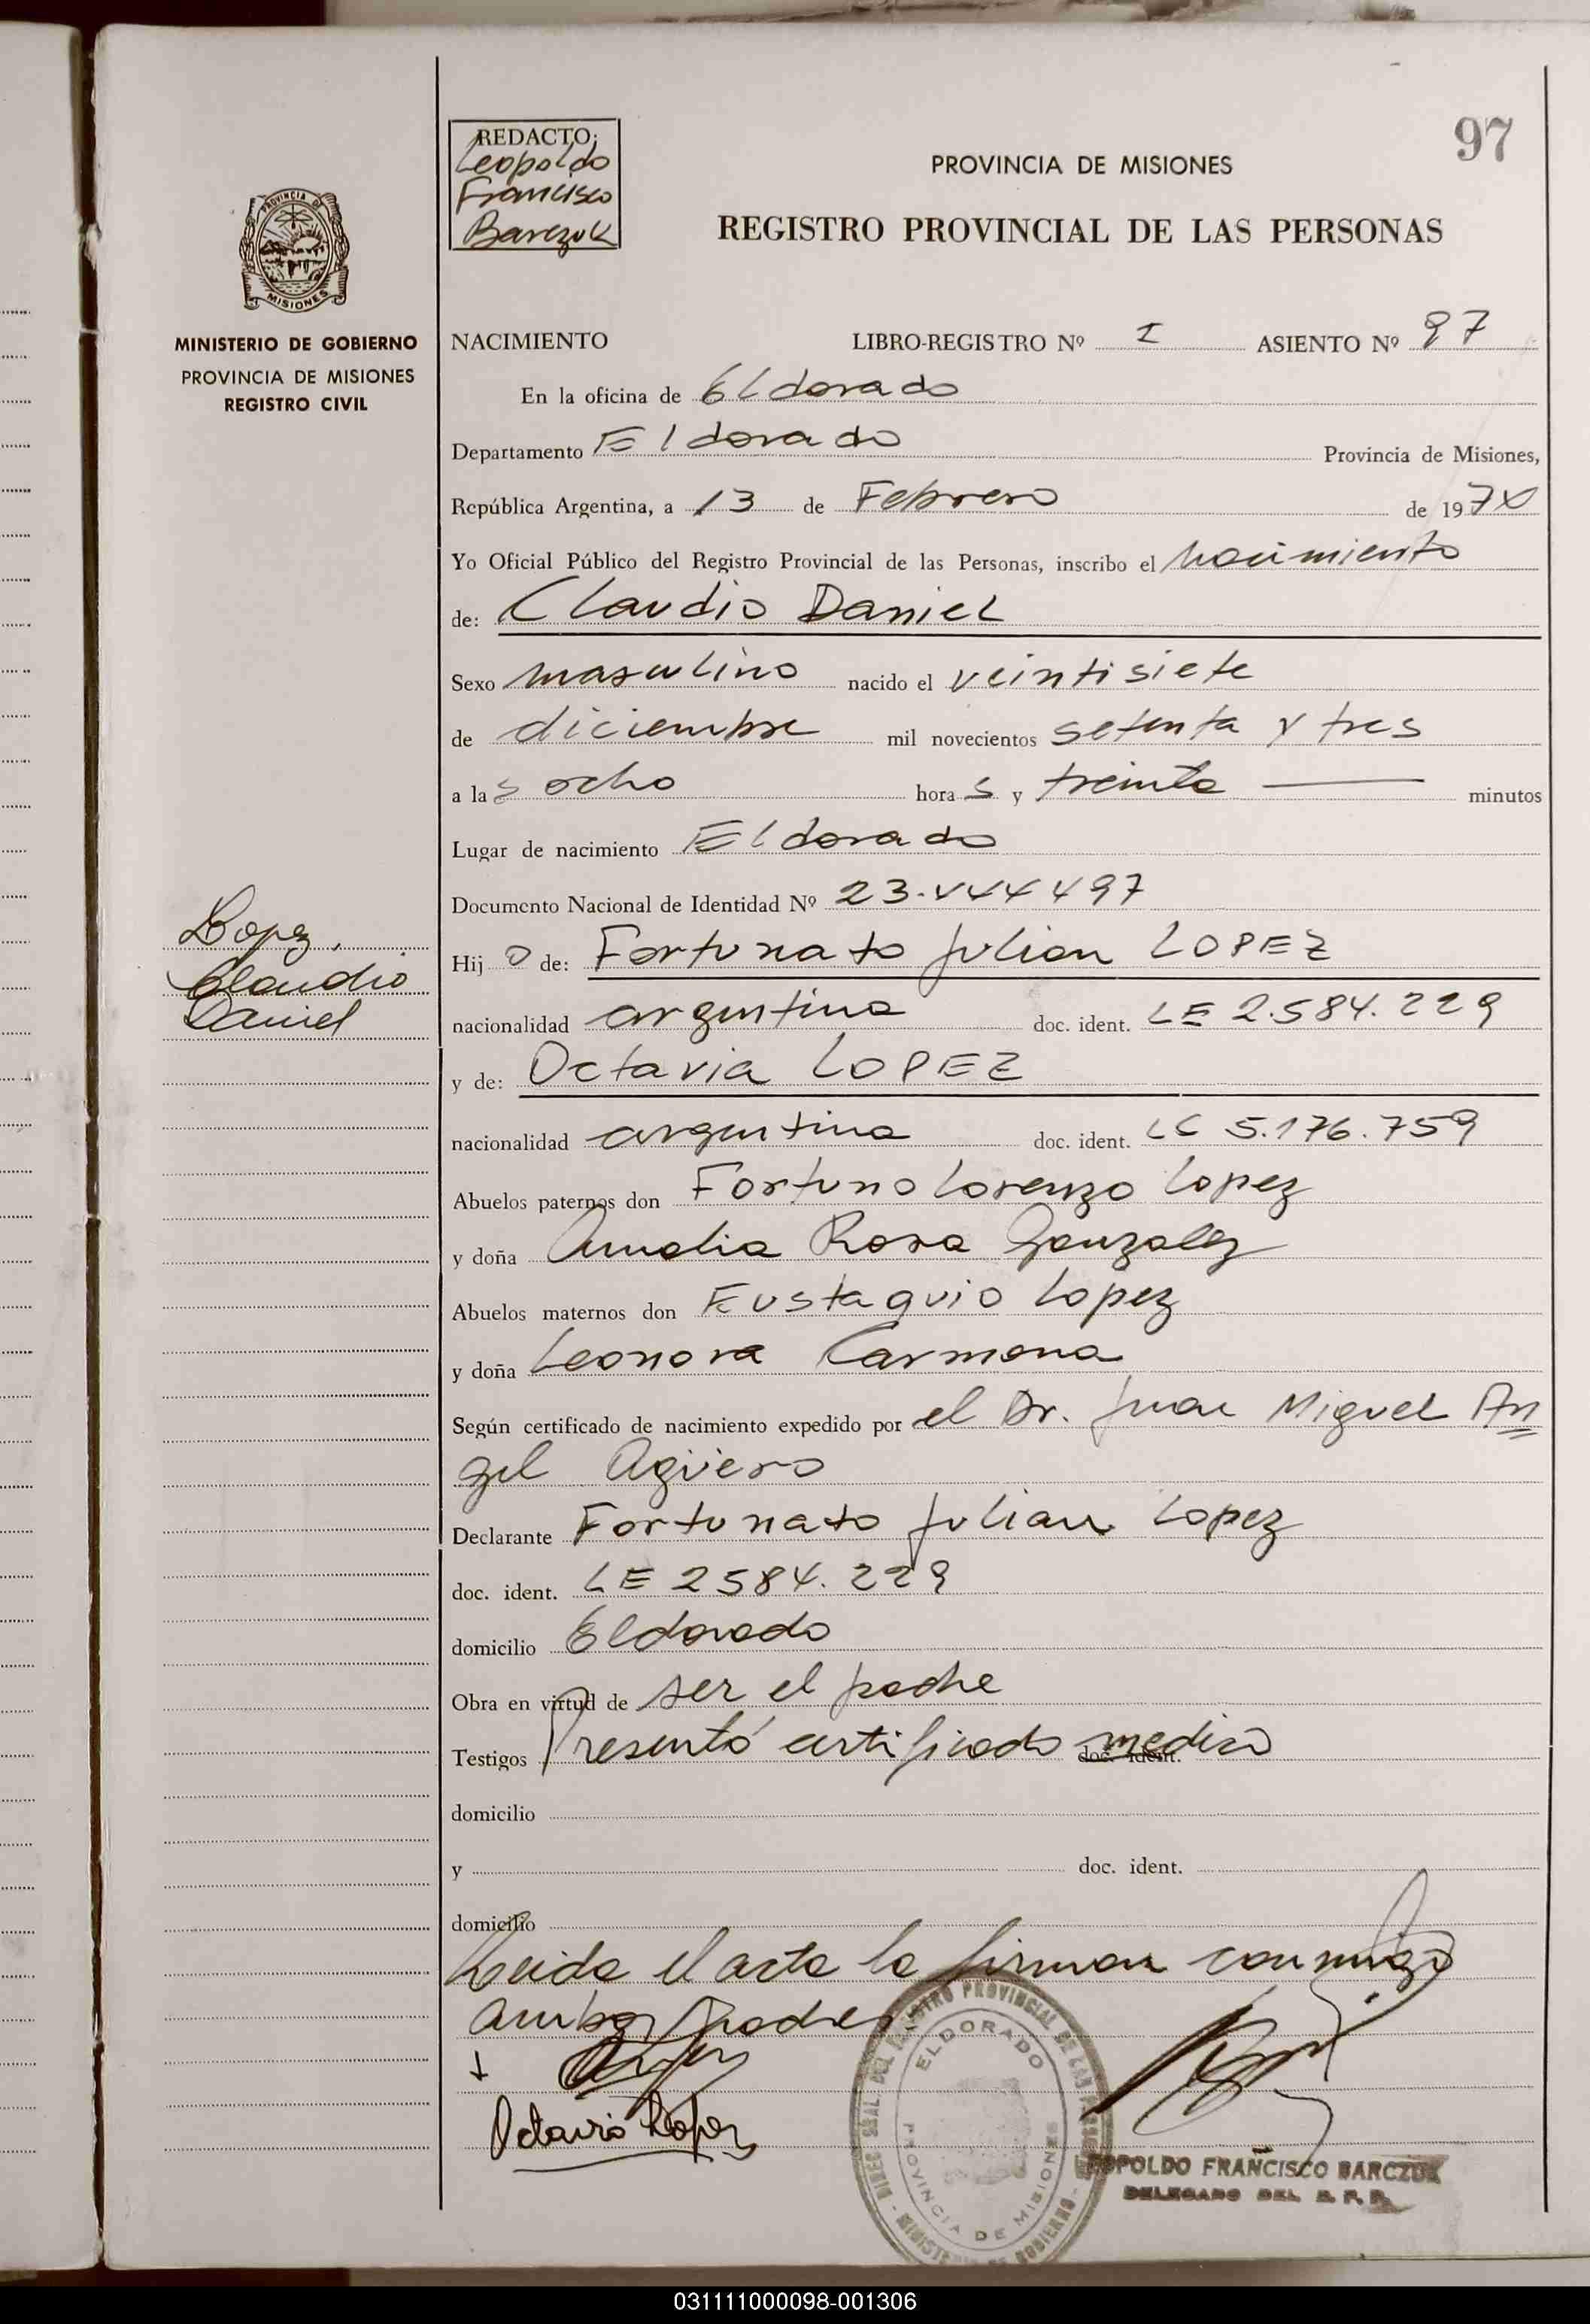 97
REDACTO:
Leopoldo
Francisco
Barczuk
PROVINCIA DE MISIONES
REGISTRO PROVINCIAL DE LAS PERSONAS
PROVINCIA DE
MISIONES
MINISTERIO DE GOBIERNO
PROVINCIA DE MISIONES
REGISTRO CIVIL
NACIMIENTO LIBRO-REGISTRO Nº I ASIENTO Nº 97
En la oficina de Eldorado
Departamento Eldorado Provincia de Misiones,
República Argentina, a 13 de Febrero de 1974
Yo Oficial Público del Registro Provincial de las Personas, inscribo el nacimiento
de: Claudio Daniel
Sexo masculino nacido el veintisiete
de diciembre mil novecientos setenta y tres
a las ocho horas y treinta minutos
Lugar de nacimiento Eldorado
Documento Nacional de Identidad Nº 23.444497
Lopez,
Claudio
Daniel
Hijo de: Fortunato Julian LOPEZ
nacionalidad argentina doc. ident. LE 2.584.229
y de: Octavia LOPEZ
nacionalidad argentina doc. ident. LC 5.176.759
Abuelos paternos don Fortuno Lorenzo Lopez
y doña Amalia Rosa Gonzalez
Abuelos maternos don Eustaquio Lopez
y doña Leonora Carmona
Según certificado de nacimiento expedido por el Dr. Juan Miguel An
gel Agüero
Declarante Fortunato Julian Lopez
doc. ident. LE 2584.229
domicilio Eldorado
Obra en virtud de ser el padre
Testigos Presentó certificado medico doc. ident.
domicilio
y doc. ident.
domicilio
Leida el acta la firman conmigo
ambos padres
Octavia Lopez
ELDORADO
PROVINCIA DE MISIONES
LEOPOLDO FRANCISCO BARCZUK
DELEGADO DEL R. P. P.
031111000098-001306